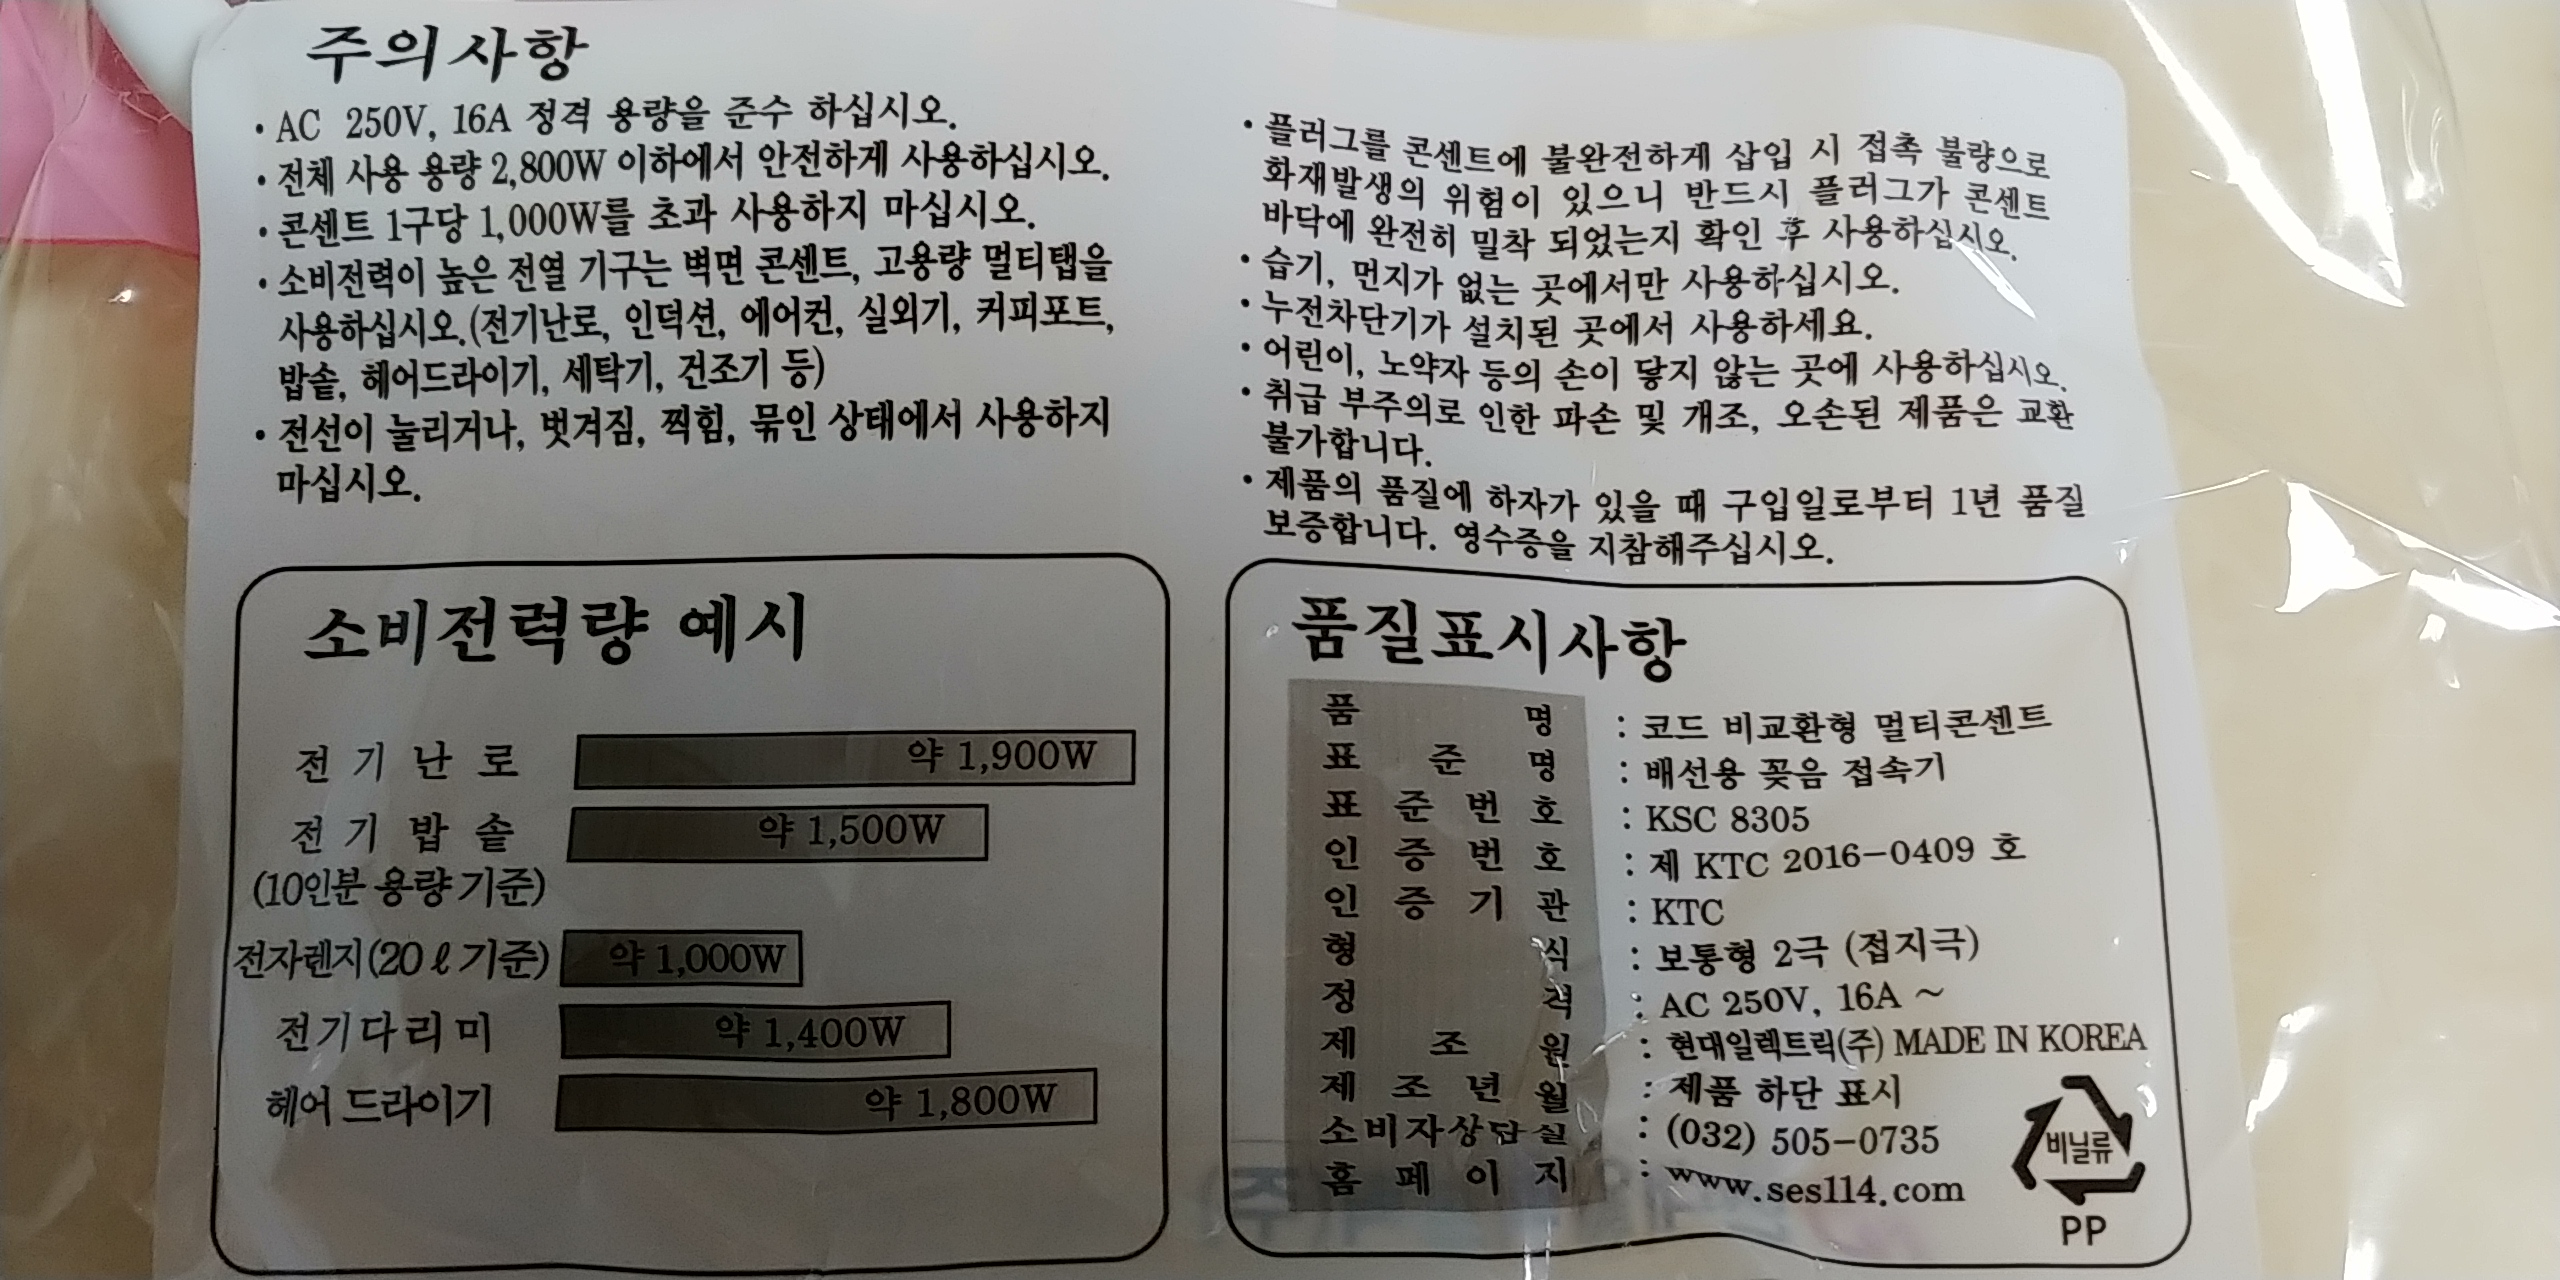 주의사항
· AC 250V, 16A 정격 용량을 준수 하십시오.
· 전체 사용 용량 2,800W 이하에서 안전하게 사용하십시오.
· 콘센트 1구당 1,000W를 초과 사용하지 마십시오.
· 소비전력이 높은 전열 기구는 벽면 콘센트, 고용량 멀티탭을
사용하십시오.(전기난로, 인덕션, 에어컨, 실외기, 커피포트,
밥솥, 헤어드라이기, 세탁기, 건조기 등)
· 전선이 눌리거나, 벗겨짐, 찍힘, 묶인 상태에서 사용하지
마십시오.
· 플러그를 콘센트에 불완전하게 삽입 시 접촉 불량으로
화재발생의 위험이 있으니 반드시 플러그가 콘센트
바닥에 완전히 밀착 되었는지 확인 후 사용하십시오.
· 습기, 먼지가 없는 곳에서만 사용하십시오.
· 누전차단기가 설치된 곳에서 사용하세요.
· 어린이, 노약자 등의 손이 닿지 않는 곳에 사용하십시오.
· 취급 부주의로 인한 파손 및 개조, 오손된 제품은 교환
불가합니다.
· 제품의 품질에 하자가 있을 때 구입일로부터 1년 품질
보증합니다. 영수증을 지참해주십시오.
소비전력량 예시
전기난로 약 1,900W
전기밥솥 약 1,500W
(10인분 용량 기준)
전자렌지(20ℓ기준) 약 1,000W
전기다리미 약 1,400W
헤어 드라이기 약 1,800W
품질표시사항
품명 : 코드 비교환형 멀티콘센트
표준명 : 배선용 꽂음 접속기
표준번호 : KSC 8305
인증번호 : 제 KTC 2016-0409 호
인증기관 : KTC
형식 : 보통형 2극 (접지극)
정격 : AC 250V, 16A ~
제조원 : 현대일렉트릭(주) MADE IN KOREA
제조년월 : 제품 하단 표시
소비자상담실 : (032) 505-0735
홈페이지 : www.ses114.com
비닐류
PP